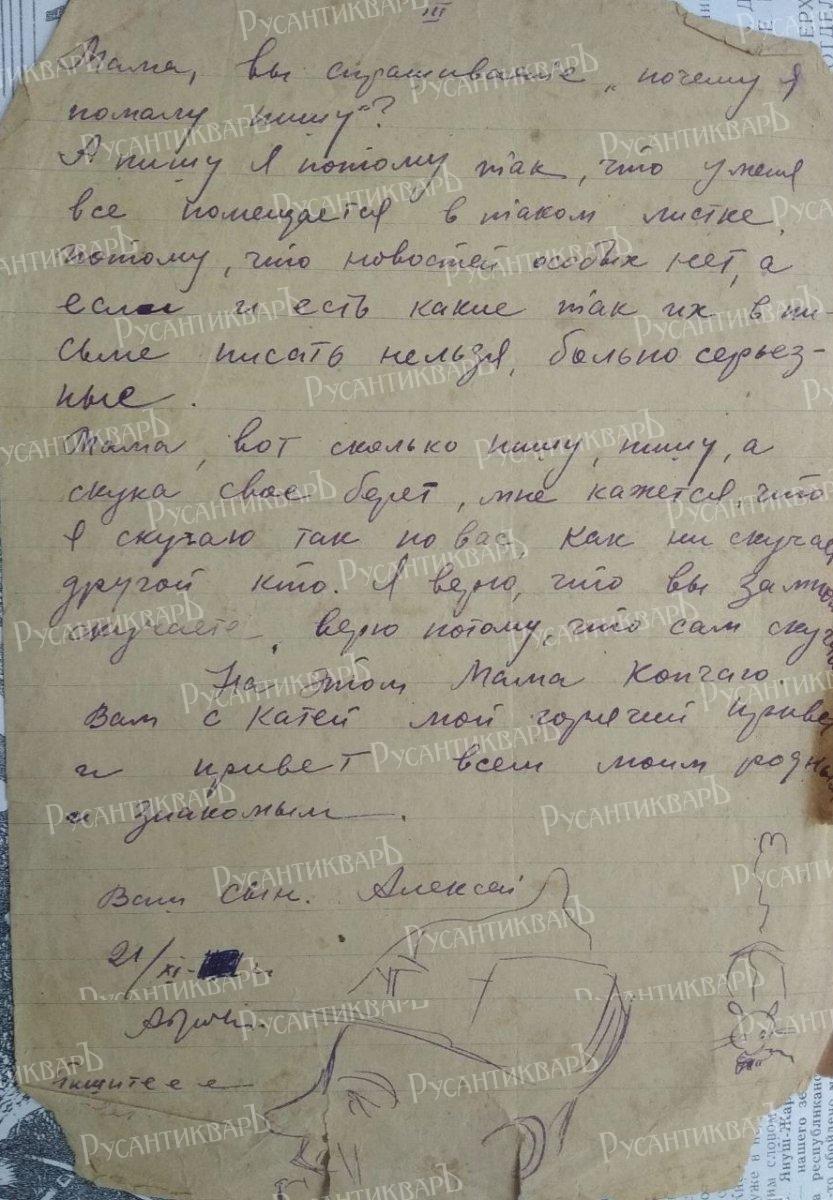 III
Мама, вы спрашиваете „почему я
помалу пишу"?
А пишу я потому так, что у меня
все помещается в таком листке,
потому, что новостей особых нет, а
если и есть какие так их в пи-
сьме писать нельзя, больно серьез-
ные.
Мама, вот сколько пишу, пишу, а
скука свое берет, мне кажется, что
я скучаю так по вас, как ни скучае
другой кто. Я верю, что вы
скучаете, верю потому, что сам скуч
На этом Мама кончаю.
Вам с Катей мой горячий приве
и привет всем моим родны
и знакомым.
Ваш сын. Алексей
21/XI-
Пищите е е